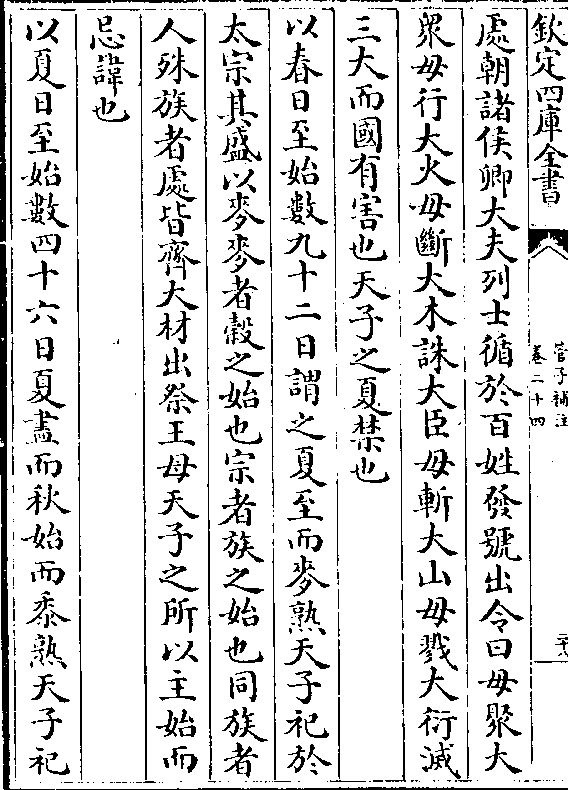 欽定四庫全書
管子補注
卷二十四
處朝諸侯卿大夫列士循於百姓發號出令曰毋聚大
衆毋行大火毋斷大木誅大臣毋斬大山毋戮大衍滅
三大而國有害也天子之夏禁也
以春日至始數九十二日謂之夏至而麥熟天子祀於
太宗其盛以麥麥者榖之始也宗者族之始也同族者
人殊族者處皆齊大材出祭王母天子之所以主始而
忌諱也
以夏日至始數四十六日夏盡而秋始而黍熟天子祀